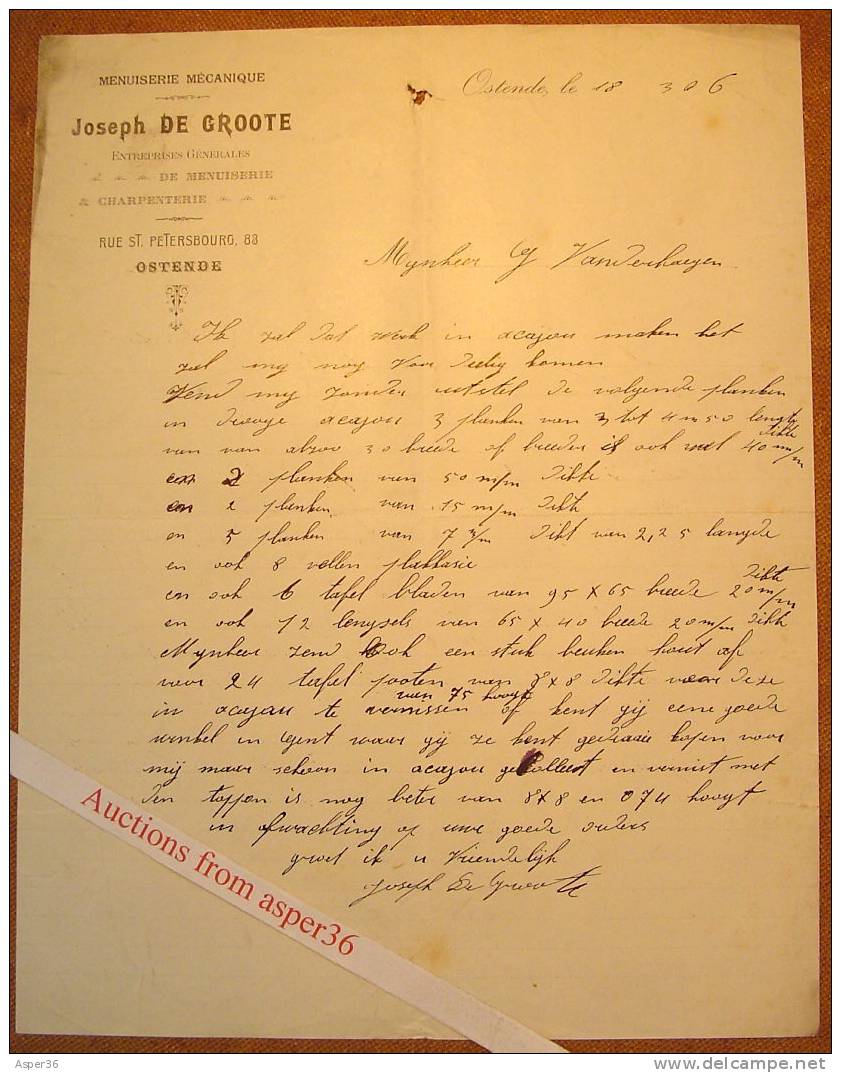 MENUISERIE MÉCANIQUE
Joseph DE GROOTE
ENTREPRISES GÉNÉRALES
DE MENUISERIE
& CHARPENTERIE
RUE ST. PETERSBOURG, 88
OSTENDE
Ostende, le 18 3 06
Mynheer G Vanderhaegen
Ik zal dat werk in acajou maken het
zal my nog komen
Zend my zonder uitstel de volgende planken
in drooge acajou 3 planken van 3 tot 4 m 50 lengte
van van 30 breede of breeder is ook wel 40 m/m dikte
en 2 planken van 50 m/m dikte
en 2 planken van 15 m/m dikte
en 5 planken van 7 m/m dikt van 2,25 langde
en ook 8 vellen
en ook 6 tafel bladen van 95 x 65 breede 20 m/m dikte
en ook 12 van 65 x 40 breede 20 m/m dikte
Mynheer zend ook een stuk beuken hout af
voor 24 tafel pooten van 8x8 dikte voor deze
in acajou te vernissen van 75 hoogt of kent gij eene goede
winkel in Gent waar gij ze kent gedraaie kopen voor
mij maar schoon in acajou en vernist met
den toppen is nog beter van 8x8 en 074 hoogt
in afwachting op uwe goede orders
groet ik u Vriendelijk
Joseph De Groote
Auctions from asper36
Asper36
www.delcampe.net